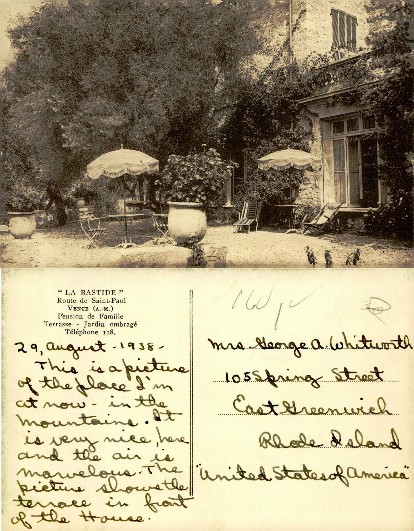 "LA BASTIDE"
Route de Saint-Paul
VENCE (A.-M.)
Pension de Famille
Terrasse - Jardin ombragé
Téléphone 118.
29, august - 1938 -
This is a picture
of the place I'm
at now in the
mountains. It
is very nice here
and the air is
marvelous. The
picture shows the
terrace in front
of the House.
Mrs. George A. Whitworth
105 Spring Street
East Greenwich
Rhode Island
United States of America